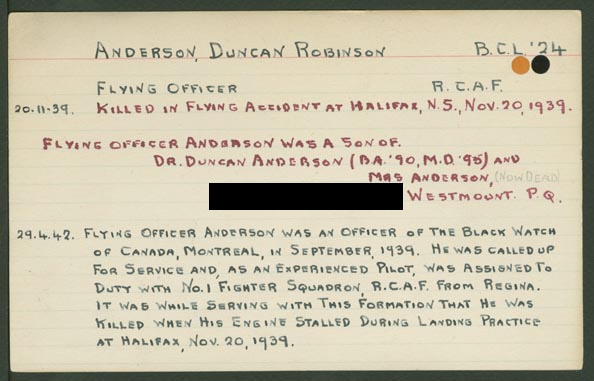 ANDERSON, DUNCAN ROBINSON B.C.L. '24
FLYING OFFICER R.C.A.F.
20.11.39. KILLED IN FLYING ACCIDENT AT HALIFAX, N.S., NOV. 20, 1939.
FLYING OFFICER ANDERSON WAS A SON OF.
DR. DUNCAN ANDERSON (B.A. '90, M.D. '95) AND
MRS ANDERSON, (NOW DEAD)
WESTMOUNT. P.Q.
29.4.42. FLYING OFFICER ANDERSON WAS AN OFFICER OF THE BLACK WATCH
OF CANADA, MONTREAL, IN SEPTEMBER, 1939. HE WAS CALLED UP
FOR SERVICE AND, AS AN EXPERIENCED PILOT, WAS ASSIGNED TO
DUTY WITH NO. 1 FIGHTER SQUADRON, R.C.A.F. FROM REGINA.
IT WAS WHILE SERVING WITH THIS FORMATION THAT HE WAS
KILLED WHEN HIS ENGINE STALLED DURING LANDING PRACTICE
AT HALIFAX, NOV. 20, 1939.